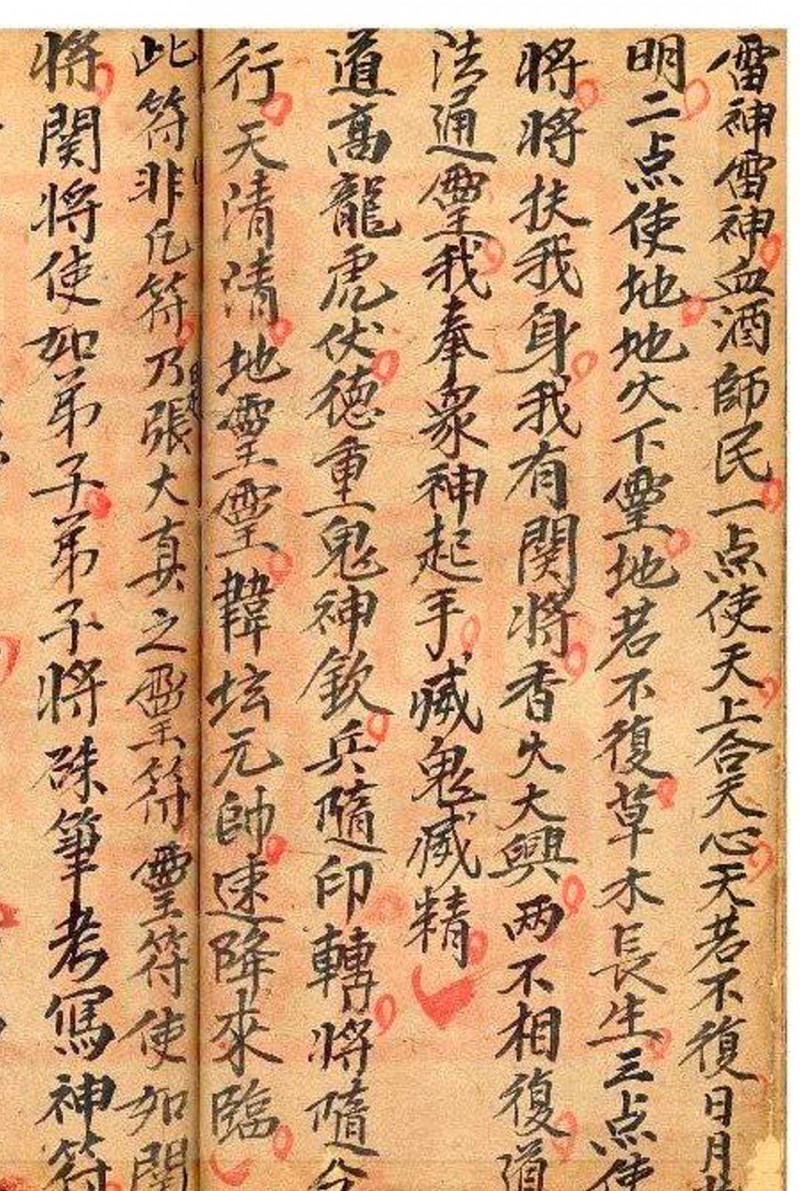 雷神雷神血酒師民一点使天上合天心天若不復日月
明二点使地地火下靈地若不復草木長生三点使
將將扶我身我有関將香火大興两不相復道
法通靈我奉眾神起手滅鬼滅精
道高龍虎伏德重鬼神欽兵隨印轉將隨令
行天清清地靈靈韓坛元帥速降來臨
此符非凢符乃張大真之靈符靈符使如関
將関將使如弟子弟子將硃筆考寫神符